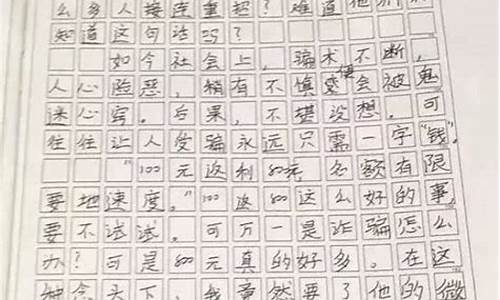 么多人接连重蹈？难道他们不
知道这句话吗？
如今社会上，骗术不断，
人心险恶，稍有不慎便会被鬼
迷心窍。后果，不堪设想。可
往往让人受骗永远只需一字“钱”。
“100元返利800元，名额有限
要地速度。”100返800这么好的事，
要不试试。可万一是诈骗怎么
办？可是800元真的好多。在这
种念头下，我竟然要了他的微